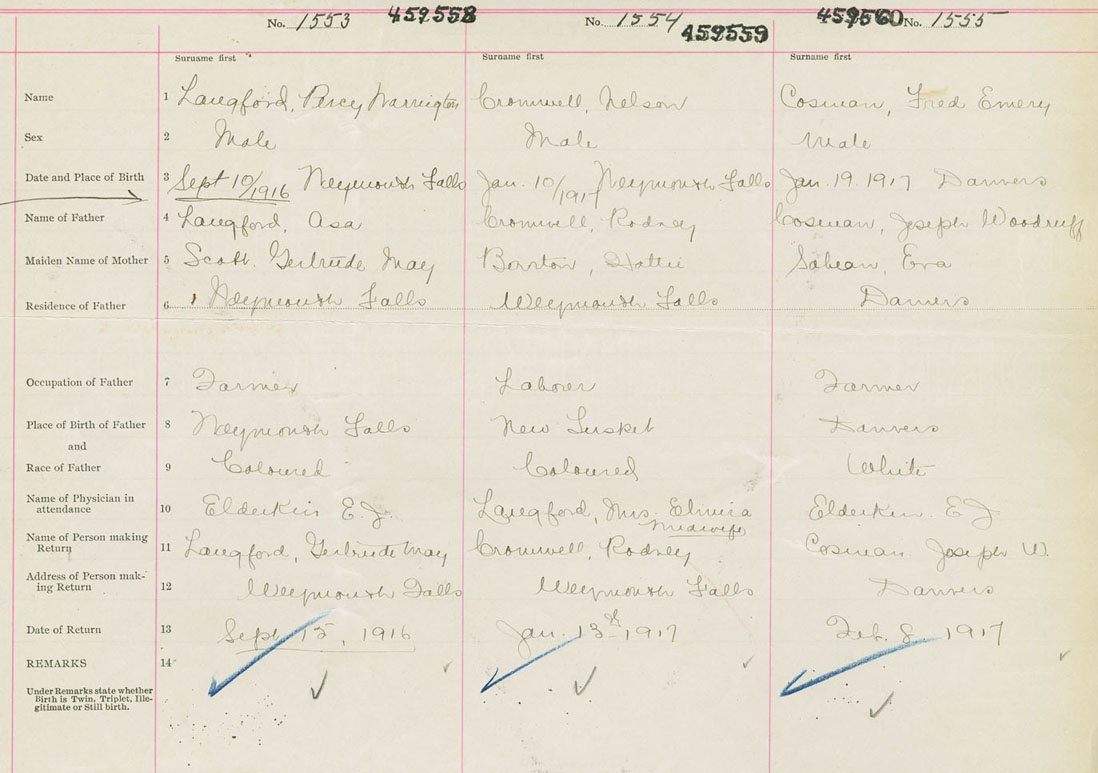 No. 1553 459558 No. 1554 459559 459560 No. 1555
Surname first Surname first Surname first
Name 1 Langford, Percy Warrington Cromwell, Nelson Cosman, Fred Emery
Sex 2 Male Male Male
Date and Place of Birth 3 Sept 10/1916 Weymouth Falls Jan. 10/1917 Weymouth Falls Jan. 19. 1917 Danvers
Name of Father 4 Langford, Asa Cromwell, Rodney Cosman, Joseph Woodruff
Maiden Name of Mother 5 Scott. Gertrude May Hattie Sabean, Eva
Residence of Father 6 Weymouth Falls Weymouth Falls Danvers
Occupation of Father 7 Farmer Laborer Farmer
Place of Birth of Father 8 Weymouth Falls New Tusket Danvers
and
Race of Father 9 Coloured Coloured White
Name of Physician in
attendance 10 Elderkin E. J. Langford, Mrs. Elmira Elderkin. E J
Midwife
Name of Person making
Return 11 Langford, Gertrude May Cromwell, Rodney Cosman. Joseph W.
Address of Person mak-
ing Return 12 Weymouth Falls Weymouth Falls Danvers
Date of Return 13 Sept 15, 1916 Jan. 13th 1917 Feb. 8 1917
REMARKS 14
Under Remarks state whether
Birth is Twin, Triplet, Ille-
gitimate or Still birth.